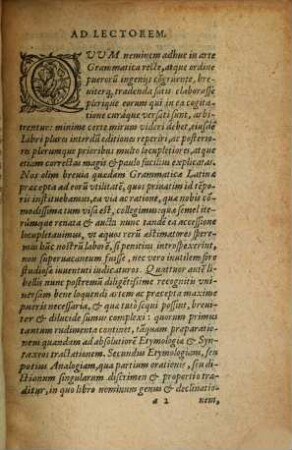 AD LECTOREM.
QVVM neminem adhuc in arte
Grammatica recte, atque ordine
puerorū ingeniis cōgruente, bre
uiterq; tradenda satis elaborasse
plerique eorum qui in ea cogita
tione curáque versati sunt, ar-
bitrentur: minime certo mirum videri debet, eiusdē
Libri plures interdū editiones reperiri, atque posterio
rem plerumque prioribus multo locupletiores, atque
etiam correctas magis & paulo facilius explicatas.
Nos olim breuia quædam Grammaticæ Latinæ
præcepta ad eorū vtilitatē, quos priuatim id tēpo-
ris instituebamus, ea via ac ratione, quæ nobis cō-
modissima tum visa est, collegimus: quæ semel iterū-
rumque renata & aucta nunc tandē ea accessione
locupletauimus, vt æquos rerū æstimatores spere-
mus hūc nostrū laborē, si penitius introspexerint,
non superuacaneum fuisse, nec vero inutilem fore
studiosæ iuuentuti iudicaturos. Quattuor autē li-
bellis nunc postremū diligētissime recognitis vni-
uersam bene loquendi artem ac præcepta maxime
pueris necessaria, & quæ tutò sequi possint, breui-
ter & dilucide sumus complexi: quorum primus
tantum rudimenta continet, tāquam præparatio-
nem quandam ad absolutiorē Etymologiæ & Syn-
taxeos tractationem. Secundus Etymologiam, seu
potius Analogiam, quæ partium orationis, seu di-
ctionum singularum discrimen & proportio tra-
ditur, in quo libro nominum genus & declinatio-
a 2 nem,